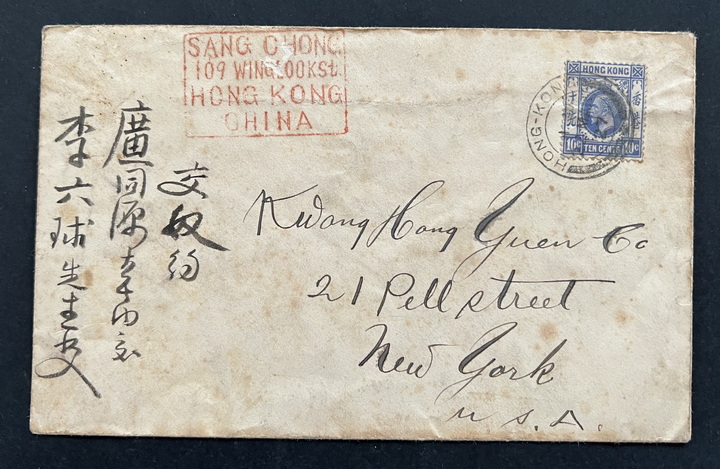 SANG CHONG
109 WINGLOOKSt
HONG KONG
CHINA
HONG KONG
香港
10c TEN CENTS 10c
HONG-KONG
交奴約
廣同源內交
李六球先生收
Kwong Hong Yuen Co
21 Pell street
New York
U.S.A.